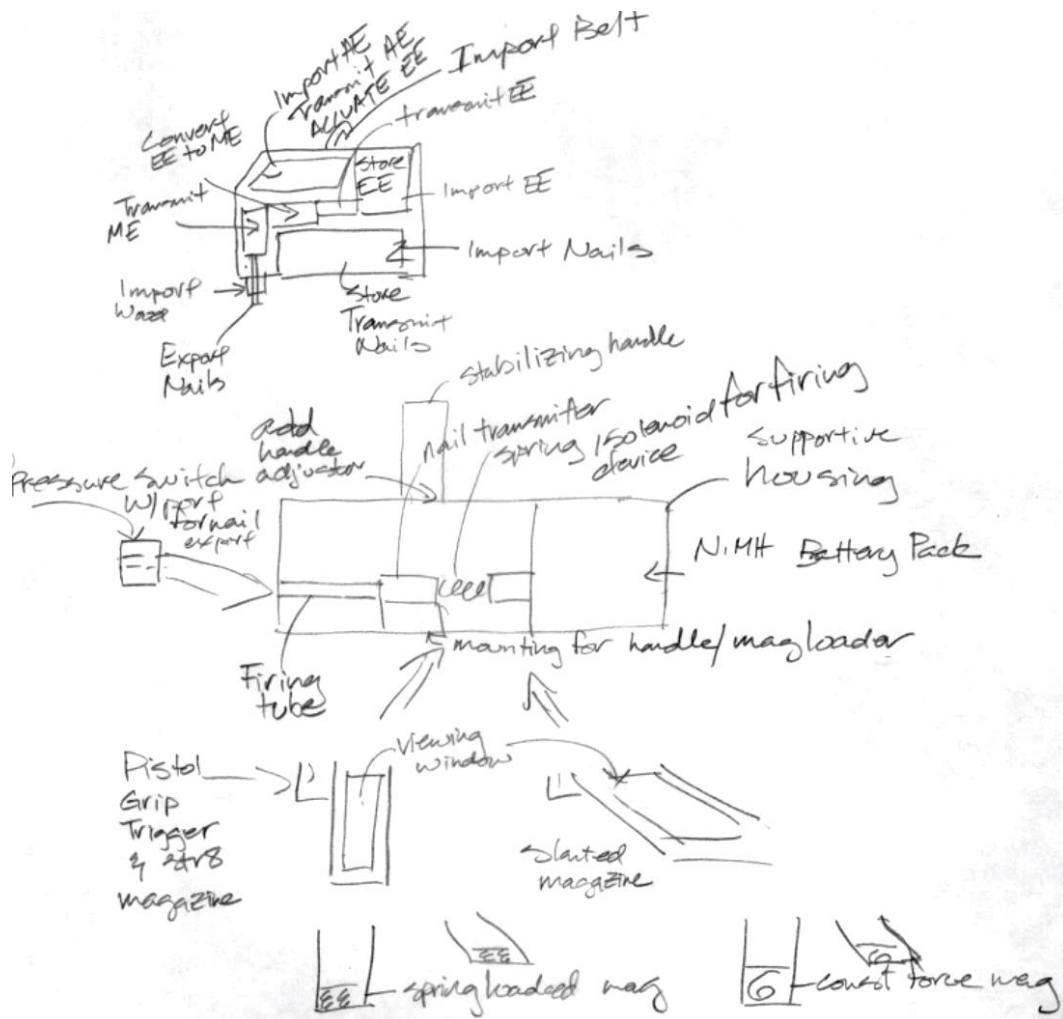 Import AE
Transmit AE
ACTUATE EE
Import Belt
transmit EE
Convert
EE to ME
Store
EE
Import EE
Transmit
ME
Import Nails
Import
Store
Transmit
Nails
Export
Nails
stabilizing handle
add
handle
adjustor
nail transmitter
spring/solenoid for firing
device
supportive
housing
Pressure switch
w/port
for nail
export
NiMH Battery Pack
mounting for handle/mag loader
Firing
tube
viewing
window
Pistol
Grip
Trigger
& str8
magazine
Slanted
magazine
spring loaded mag
const force mag